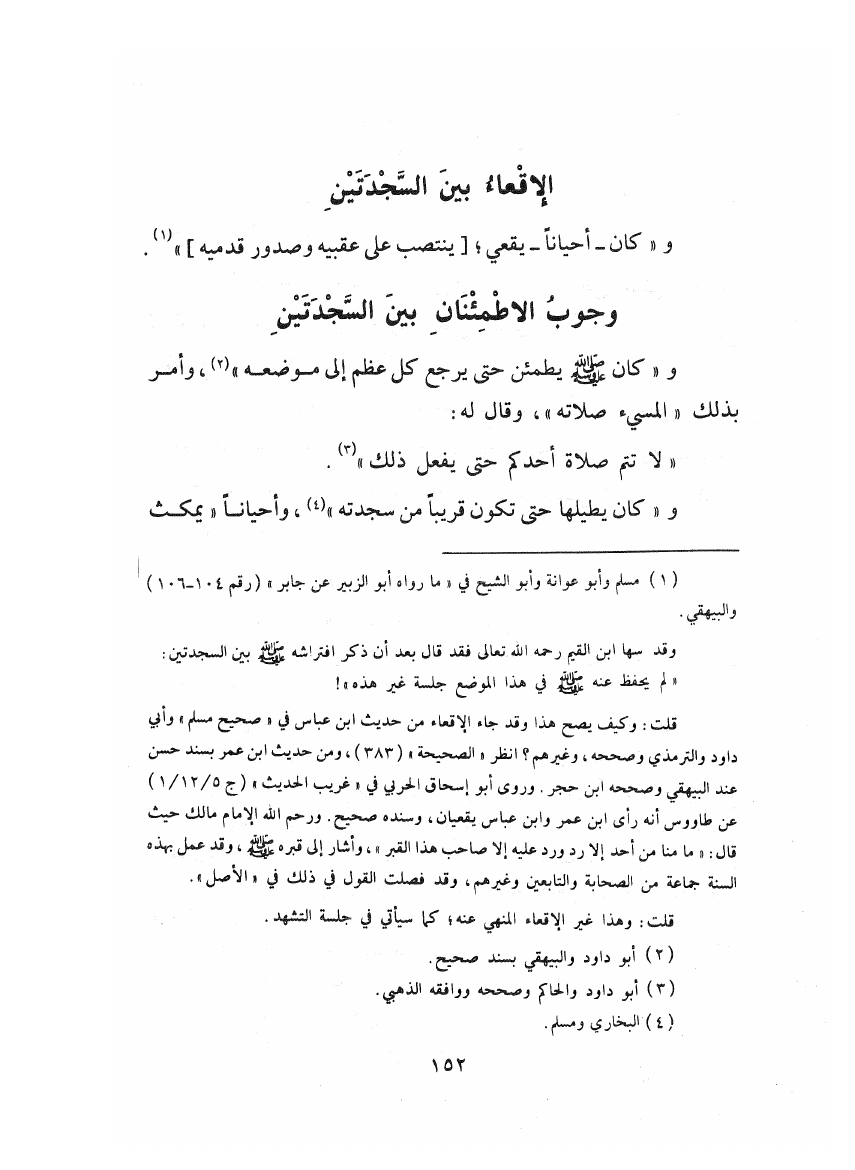 الإقْعاءُ بينَ السَّجْدَتَيْنِ
و « كان ـ أحياناً ـ يقعي ؛ [ ينتصب على عقبيه وصدور قدميه ] »(١) .
وجوبُ الاطْمِئْنَانِ بينَ السَّجْدَتَيْنِ
و « كان ﷺ يطمئن حتى يرجع كل عظم إلى موضعه »(٢) ، وأمر
بذلك « المسيء صلاته » ، وقال له :
« لا تتم صلاة أحدكم حتى يفعل ذلك »(٣) .
و « كان يطيلها حتى تكون قريباً من سجدته »(٤) ، وأحياناً « يمكث
(١) مسلم وأبو عوانة وأبو الشيخ في « ما رواه أبو الزبير عن جابر » (رقم ١٠٤-١٠٦)
والبيهقي .
وقد سها ابن القيم رحمه الله تعالى فقد قال بعد أن ذكر افتراشه ﷺ بين السجدتين :
« لم يحفظ عنه ﷺ في هذا الموضع جلسة غير هذه » !
قلت : وكيف يصح هذا وقد جاء الإقعاء من حديث ابن عباس في « صحيح مسلم » وأبي
داود والترمذي وصححه ، وغيرهم ؟ انظر « الصحيحة » (٣٨٣) ، ومن حديث ابن عمر بسند حسن
عند البيهقي وصححه ابن حجر . وروى أبو إسحاق الحربي في « غريب الحديث » (ج ١/١٢/٥)
عن طاووس أنه رأى ابن عمر وابن عباس يقعيان ، وسنده صحيح . ورحم الله الإمام مالك حيث
قال : « ما منا من أحد إلا رد ورد عليه إلا صاحب هذا القبر » ، وأشار إلى قبره ﷺ ، وقد عمل بهذه
السنة جماعة من الصحابة والتابعين وغيرهم ، وقد فصلت القول في ذلك في « الأصل » .
قلت : وهذا غير الإقعاء المنهي عنه ؛ كما سيأتي في جلسة التشهد .
(٢) أبو داود والبيهقي بسند صحيح .
(٣) أبو داود والحاكم وصححه ووافقه الذهبي .
(٤) البخاري ومسلم .
١٥٢